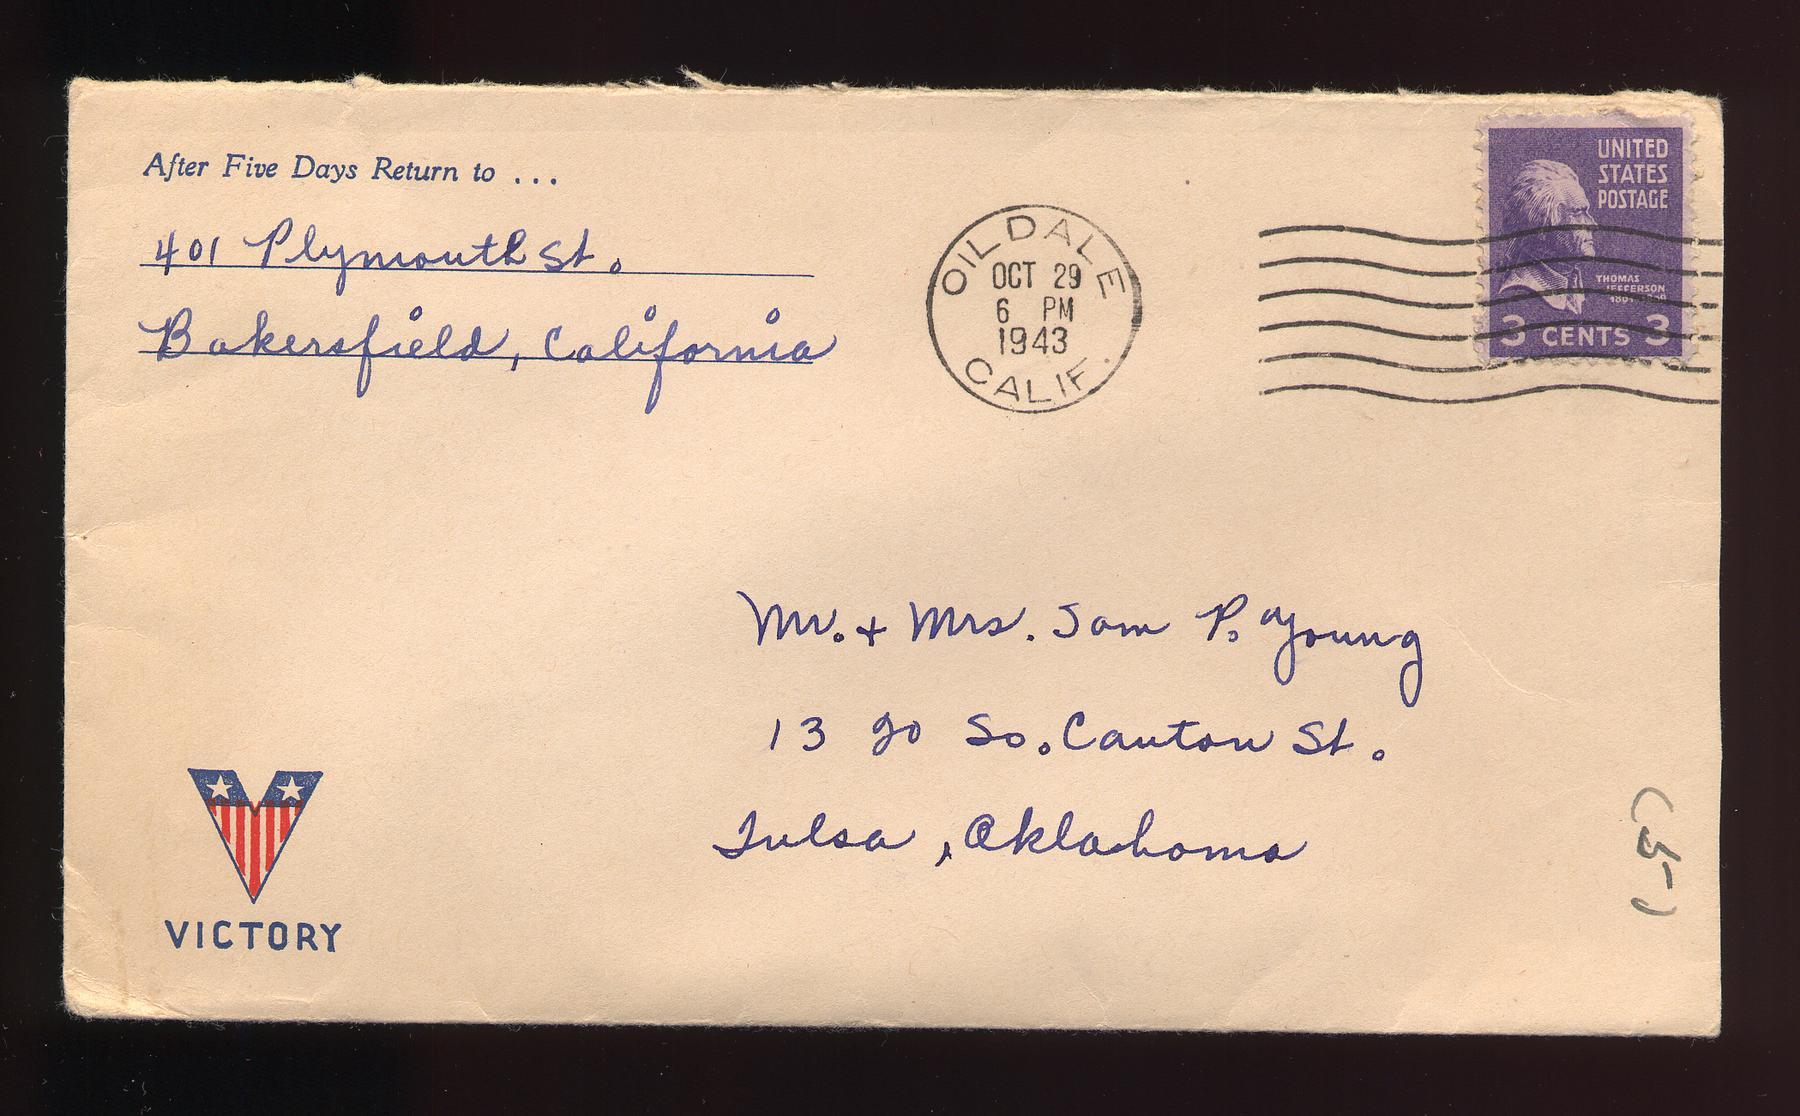 After Five Days Return to ...
401 Plymouth St.
Bakersfield, California
OILDALE
OCT 29
6 PM
1943
CALIF.
UNITED
STATES
POSTAGE
THOMAS
JEFFERSON
3 CENTS 3
Mr. + Mrs. Sam P. Young
13 So. Canton St.
Tulsa, Oklahoma
VICTORY